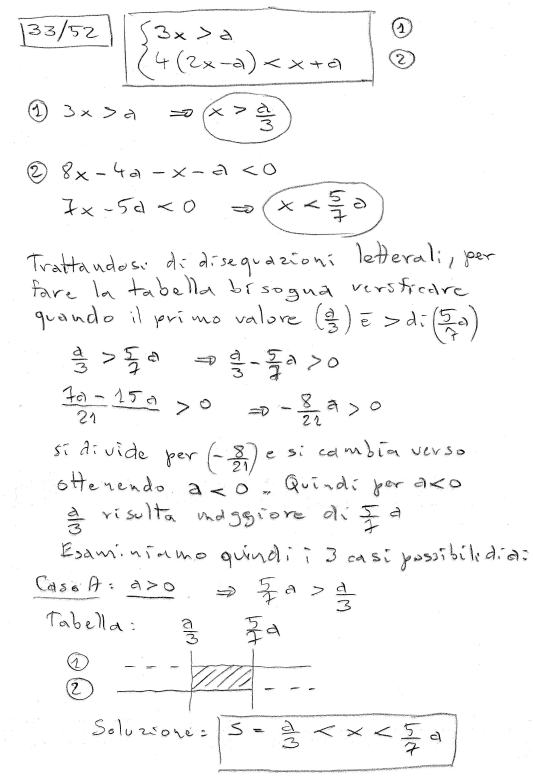 33/52 { 3x > a ①
4(2x-a) < x+a ②
① 3x > a ⇒ x > a/3
② 8x - 4a - x - a < 0
7x - 5a < 0 ⇒ x < 5/7 a
Trattandosi di disequazioni letterali, per
fare la tabella bisogna verificare
quando il primo valore (a/3) è > di (5/7 a)
a/3 > 5/7 a ⇒ a/3 - 5/7 a > 0
7a - 15a / 21 > 0 ⇒ - 8/21 a > 0
si divide per (-8/21) e si cambia verso
ottenendo a < 0. Quindi per a<0
a/3 risulta maggiore di 5/7 a
Esaminiamo quindi i 3 casi possibili di a:
Caso A: a>0 ⇒ 5/7 a > a/3
Tabella: a/3 5/7 a
①
②
Soluzione: S = a/3 < x < 5/7 a